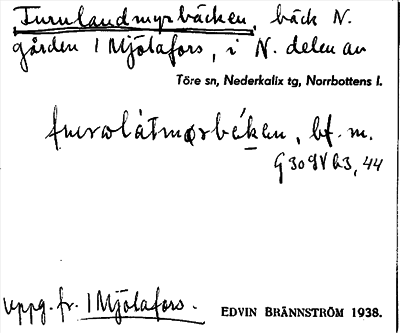 Furulandmyrbäcken, bäck N.
gården 1 Mjölafors, i N. delen av
Töre sn, Nederkalix tg, Norrbottens l.
bf. m.
uppg. fr. 1 Mjölafors.
EDVIN BRÄNNSTRÖM 1938.